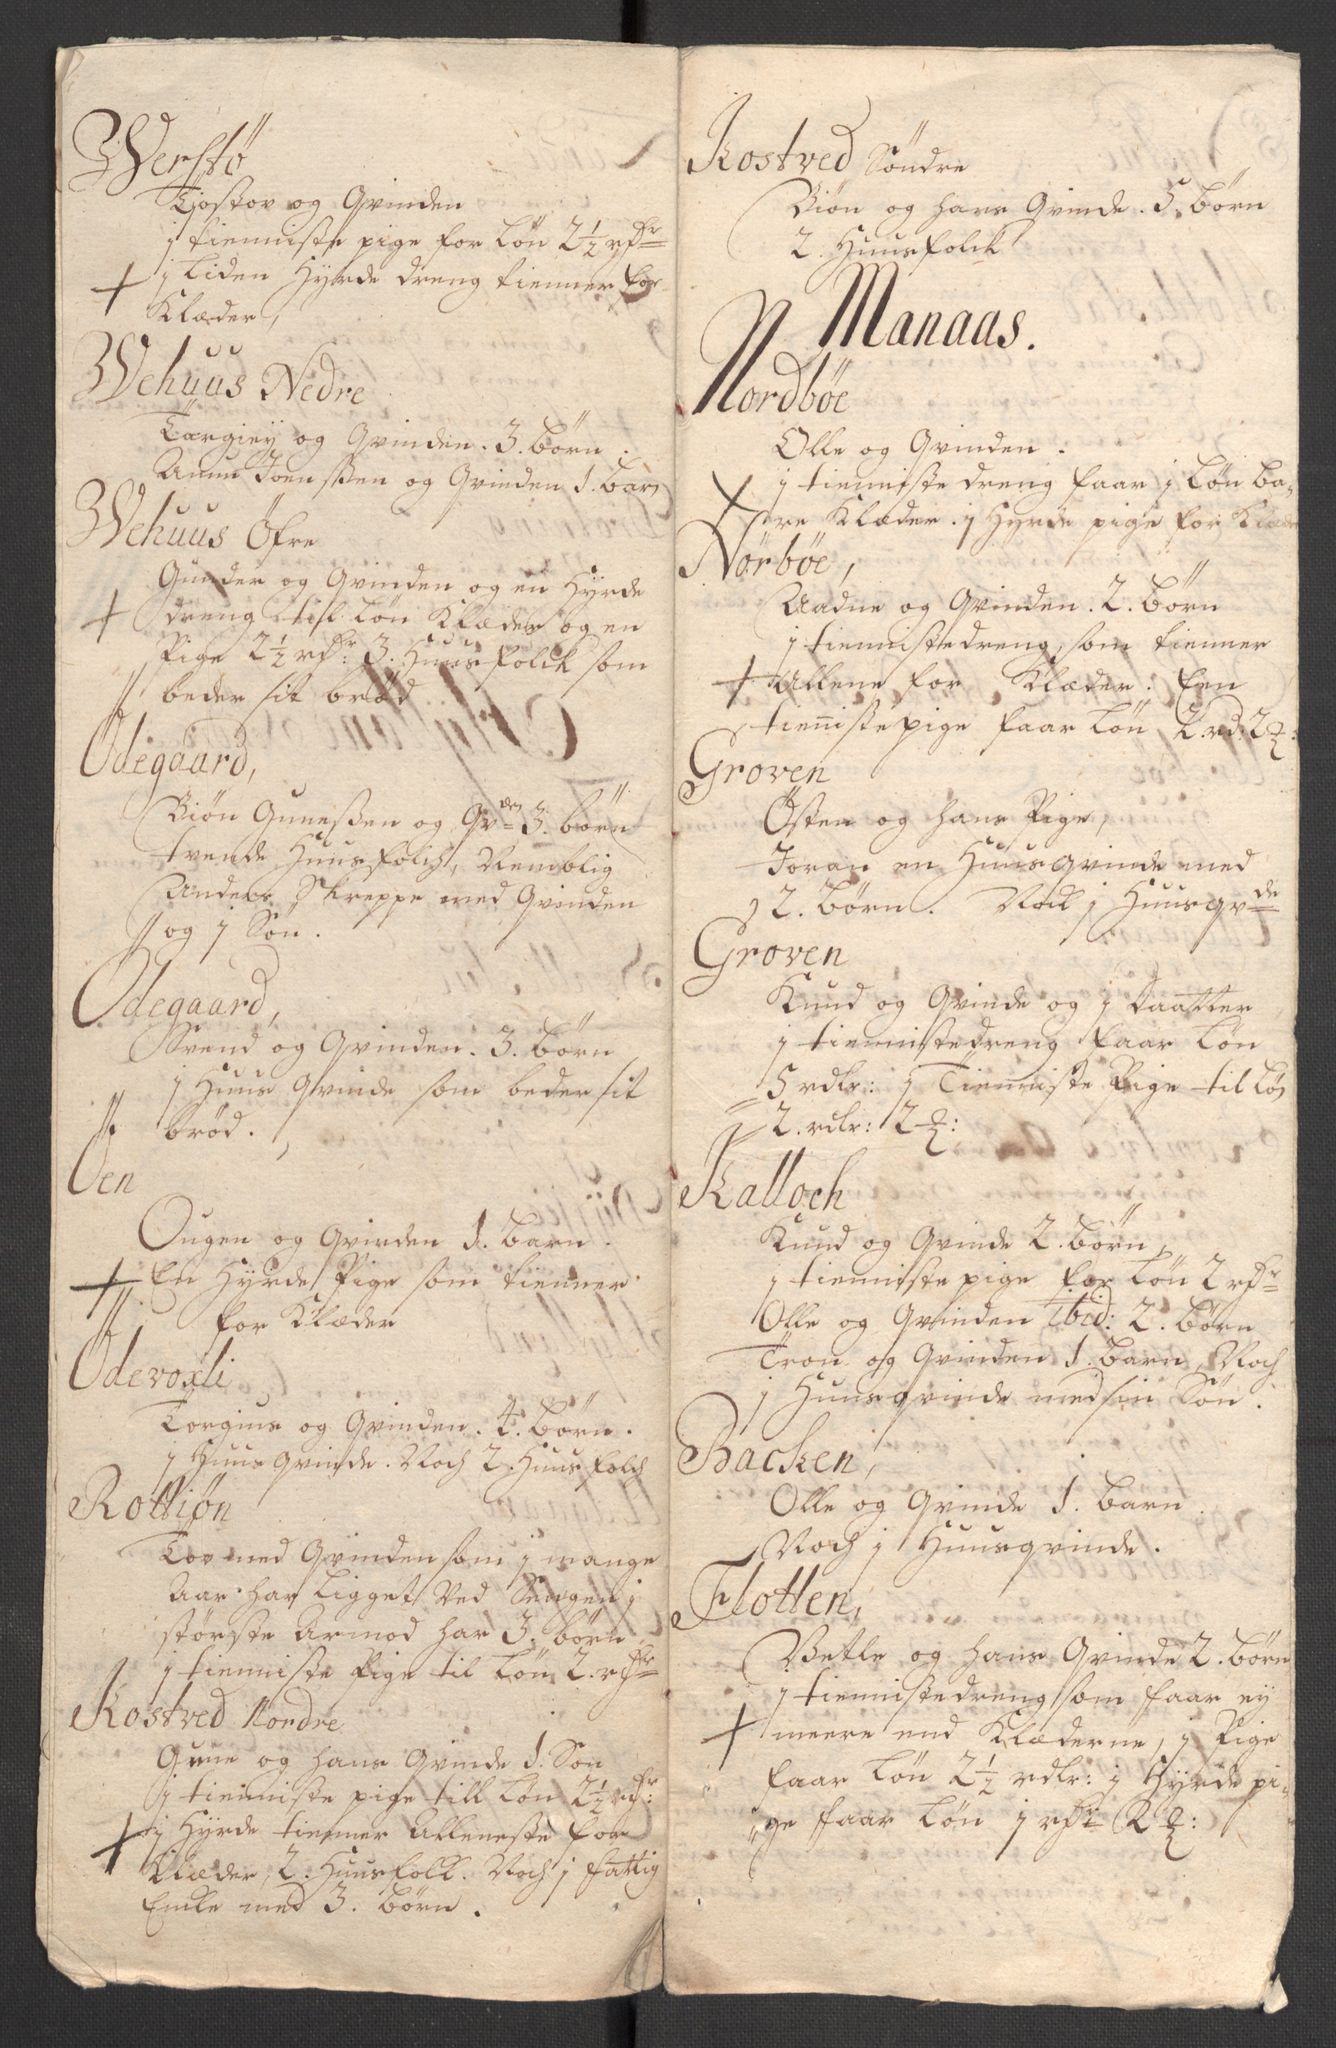 Werstø
Kiostov og Qvinden
j tienniste pige for Løn 2½ rdr
+ j liden Hyrde dreng tienner for
Klæder,
Wehuus Nedre
Targiey og Qvinden. 3. børn.
Anun Joenssen og Qvinden 1. barn
Wehuus Öfre
Gunder og Qvinden og en Hyrde
+ dreng til Løn Klæder og en
Pige 2½ rdr: 3. Huusfolck som
beder sit brød
Ødegaard,
Biøn Gunessen og Qvden 3. børn
tvende Huusfolch, Nemblig
Anders Skreppe med Qvinden
og j Søn.
Ødegaard,
Svend og Qvinden. 3. børn
j Huus Qvinde som beder sit
brød.
Øen
Ougen og Qvinden 1. barn.
+ En Hyrde Pige som tienner
for Klæder
Ødevoxli
Torgius og Qvinden. 4. børn.
j Huus Qvinde. Noch 2. Huusfolch
Rottiøn
Tov med Qvinden som j mange
Aar har ligget ved Sengen j
største Armod har 3. børn
j tienniste Pige til Løn 2. rdr
Kostved Nordre
Gune og hans Qvinde 1. Søn
j tienniste pige till Løn 2½ rdr:
+ j Hyrde tienner Alleneste for
Klæder, 2. Huusfolk. Noch j fattig
Encke med 3. børn.
Kostved Söndre
Biøn og hans Qvinde. 5. børn
2. Huusfolck
Manaas.
Nordbøe
Olle og Qvinden.
+ j tienniste dreng faar j Løn ba-
re Klæder. j Hyrde pige for Klæder
Nørbøe,
Aadne og Qvinden. 2. børn
j tiennistedreng, som tienner
+ Allene for Klæder. Een
tiennistepige faar Løn 2. rd: 2 ß:
Groven
Østen og hans Pige,
Joran en Huusqvinde med
2. børn. Nock j Huusqvde
Groven
Knud og Qvinde og j Daatter
j tiennistedreng faar Løn
5 rdlr: j Tienniste Pige til Løn
2. rdlr: 2 ß:
Kalloch
Knud og Qvinde 2. børn,
j tienniste pige for Løn 2 rdr
Olle og Qvinden Ibid: 2. børn
Tron og Qvinden 1. barn, Noch
j Huusqvinde med sin Søn.
Backen,
Olle og Qvinde 1. barn.
Noch j Huusqvinde.
Flotten,
Betle og hans Qvinde 2. børn
j tiennistedreng som faar ey
+ meere end Klæderne, j Pige
faar Løn 2½ rdlr: j Hyrde pi-
ge faar Løn j rdr 2 ß: